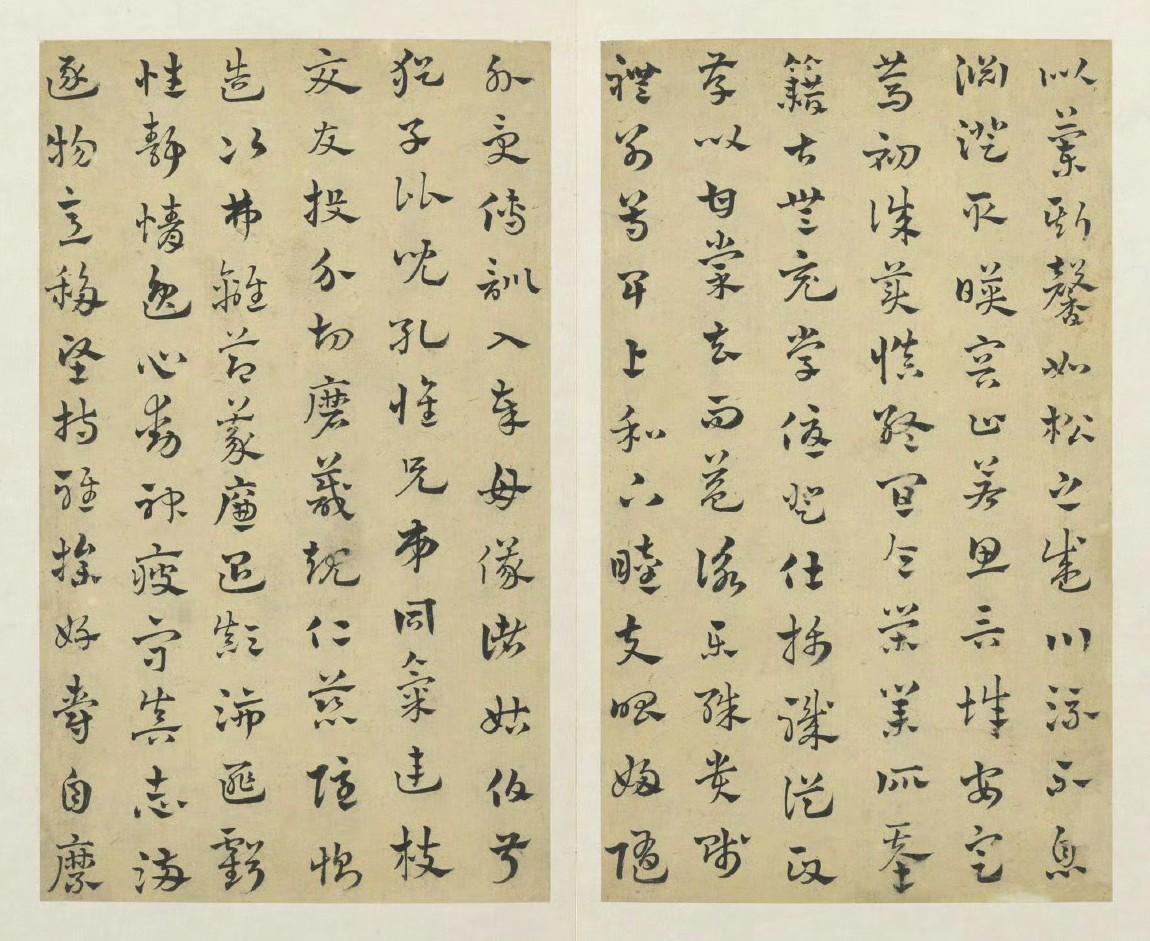 似蘭斯馨如松之盛川流不息
淵澄取暎容止若思言辭安定
篤初誠美慎終宜令榮業所基
籍甚無竟學優登仕攝職從政
存以甘棠去而益詠樂殊貴賤
禮別尊卑上和下睦夫唱婦隨
外受傅訓入奉母儀諸姑伯叔
猶子比兒孔懷兄弟同氣連枝
交友投分切磨箴規仁慈隱惻
造次弗離節義廉退顛沛匪虧
性靜情逸心動神疲守真志滿
逐物意移堅持雅操好爵自縻